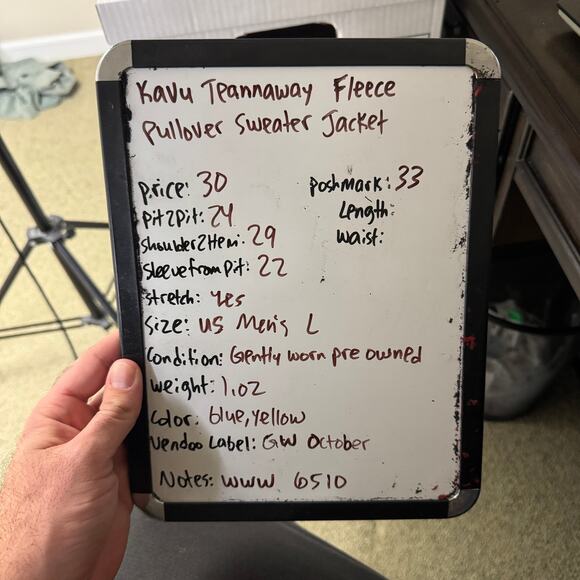 Kavu Teannaway Fleece
Pullover Sweater Jacket
price: 30
poshmark: 33
pit2pit: 24
Length:
shoulder2Hem: 29
waist:
sleevefrompit: 22
stretch: yes
size: US Men's L
Condition: Gently worn pre owned
weight: 1.02
Color: blue, yellow
Vendoo Label: GW October
Notes: WWW 6510